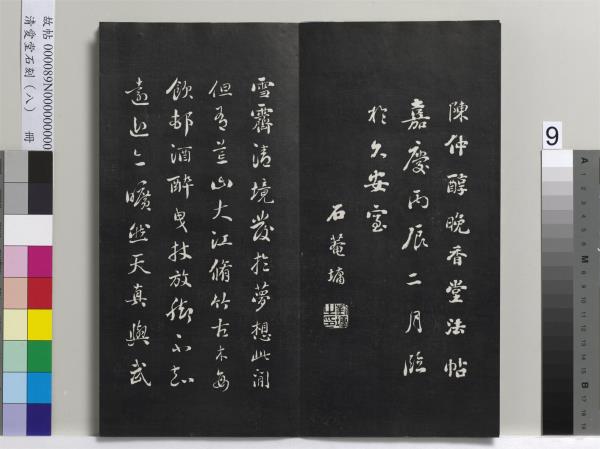 陳仲醇晚香堂法帖
嘉慶丙辰二月臨
於久安室
石菴墉
雪霽清境發於夢想此間
但有荒山大江脩竹古木每
飲邨酒醉曳杖放腳不知
遠近亦曠然天真與武
故帖 000089N000000000
清愛堂石刻(八) 冊
9